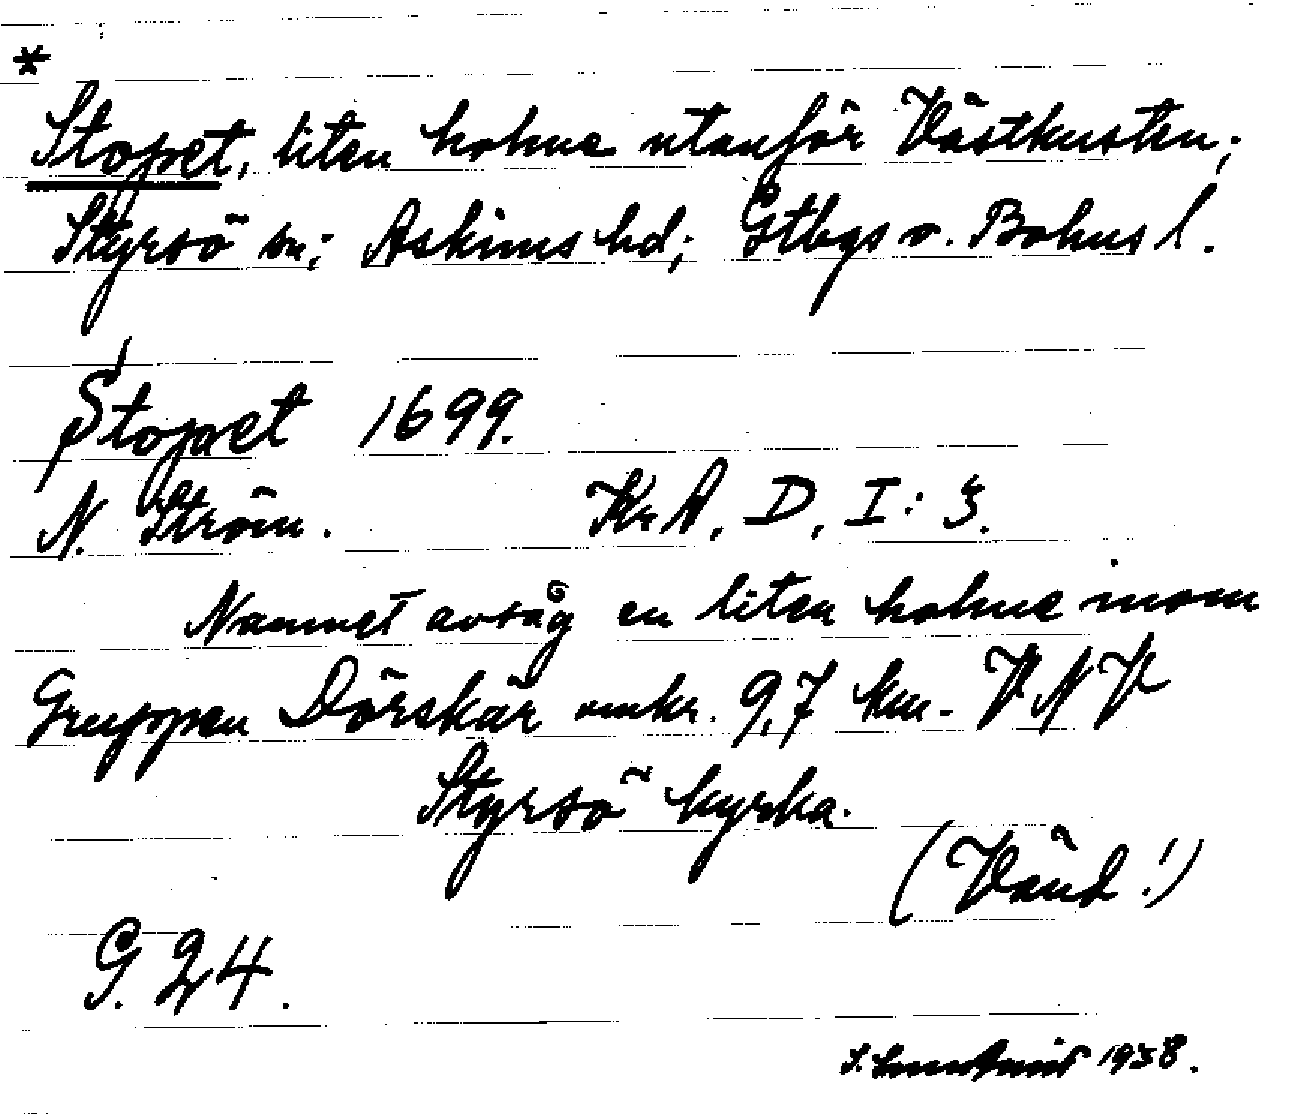 *
Stopet, liten holme utanför Västkusten;
Styrsö sn; Askims hd; Gtbgs o. Bohus l.
Stopet 1699.
N. Ström. KrA, D, I: 3.
Namnet avsåg en liten holme inom
Gruppen Dörskär omkr. 9,7 km. VNV
Styrsö kyrka.
(Vänd!)
G. 24.
1938.